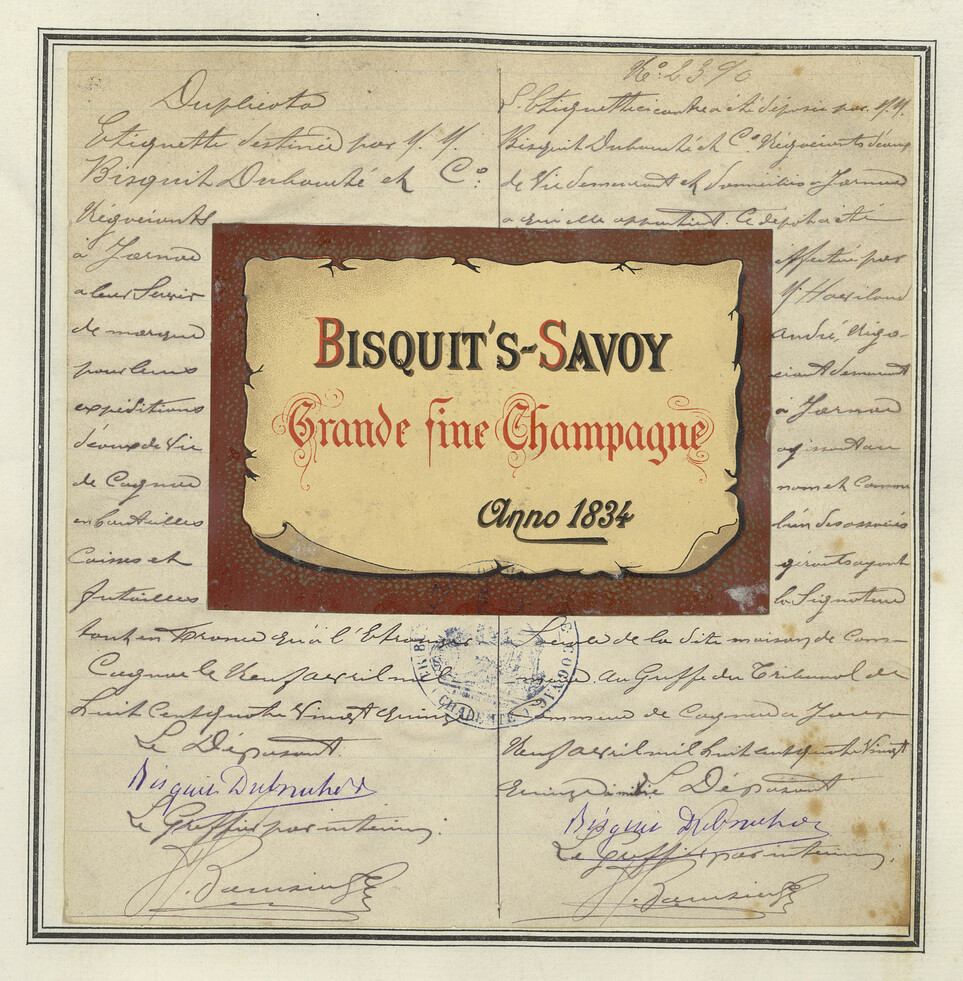 Duplicata
Etiquette destinée par M. M.
Bisquit Dubouché et Cᵒ:
Négociants
à Jarnac
a leur Servir
de marque
pour leurs
expéditions
d'eaux de Vie
de Cognac
en bouteilles
Caisses et
futailles
tant en France qu'à l'Etranger
Cognac le Neuf avril mil
huit cent quatre Vingt quinze
Le Déposant
Bisquit Dubouché
Le Greffier par interim:
Nº 2390
L'Etiquette ci contre a été déposée par M.M.
Bisquit Dubouché et Cᵒ Négociants d'eaux
de Vie demeurant et domiciliés a Jarnac
a qui elle appartient. Ce dépot a été
effectué par
Mʳ Haviland
André, Négo-
ciant demeurant
à Jarnac
agissant au
nom et comme
l'un des associés
gérants ayant
la Signature
Sociale de la dite maison de Com-
merce. Au Greffe du Tribunal de
Commerce de Cognac a Jour
Neuf avril mil huit cent quatre Vingt
quinze Le Déposant
Bisquit Dubouché
Le Greffier par interim,
BISQUIT'S-SAVOY
Grande fine Champagne
Anno 1834
COGNAC
CHARENTE